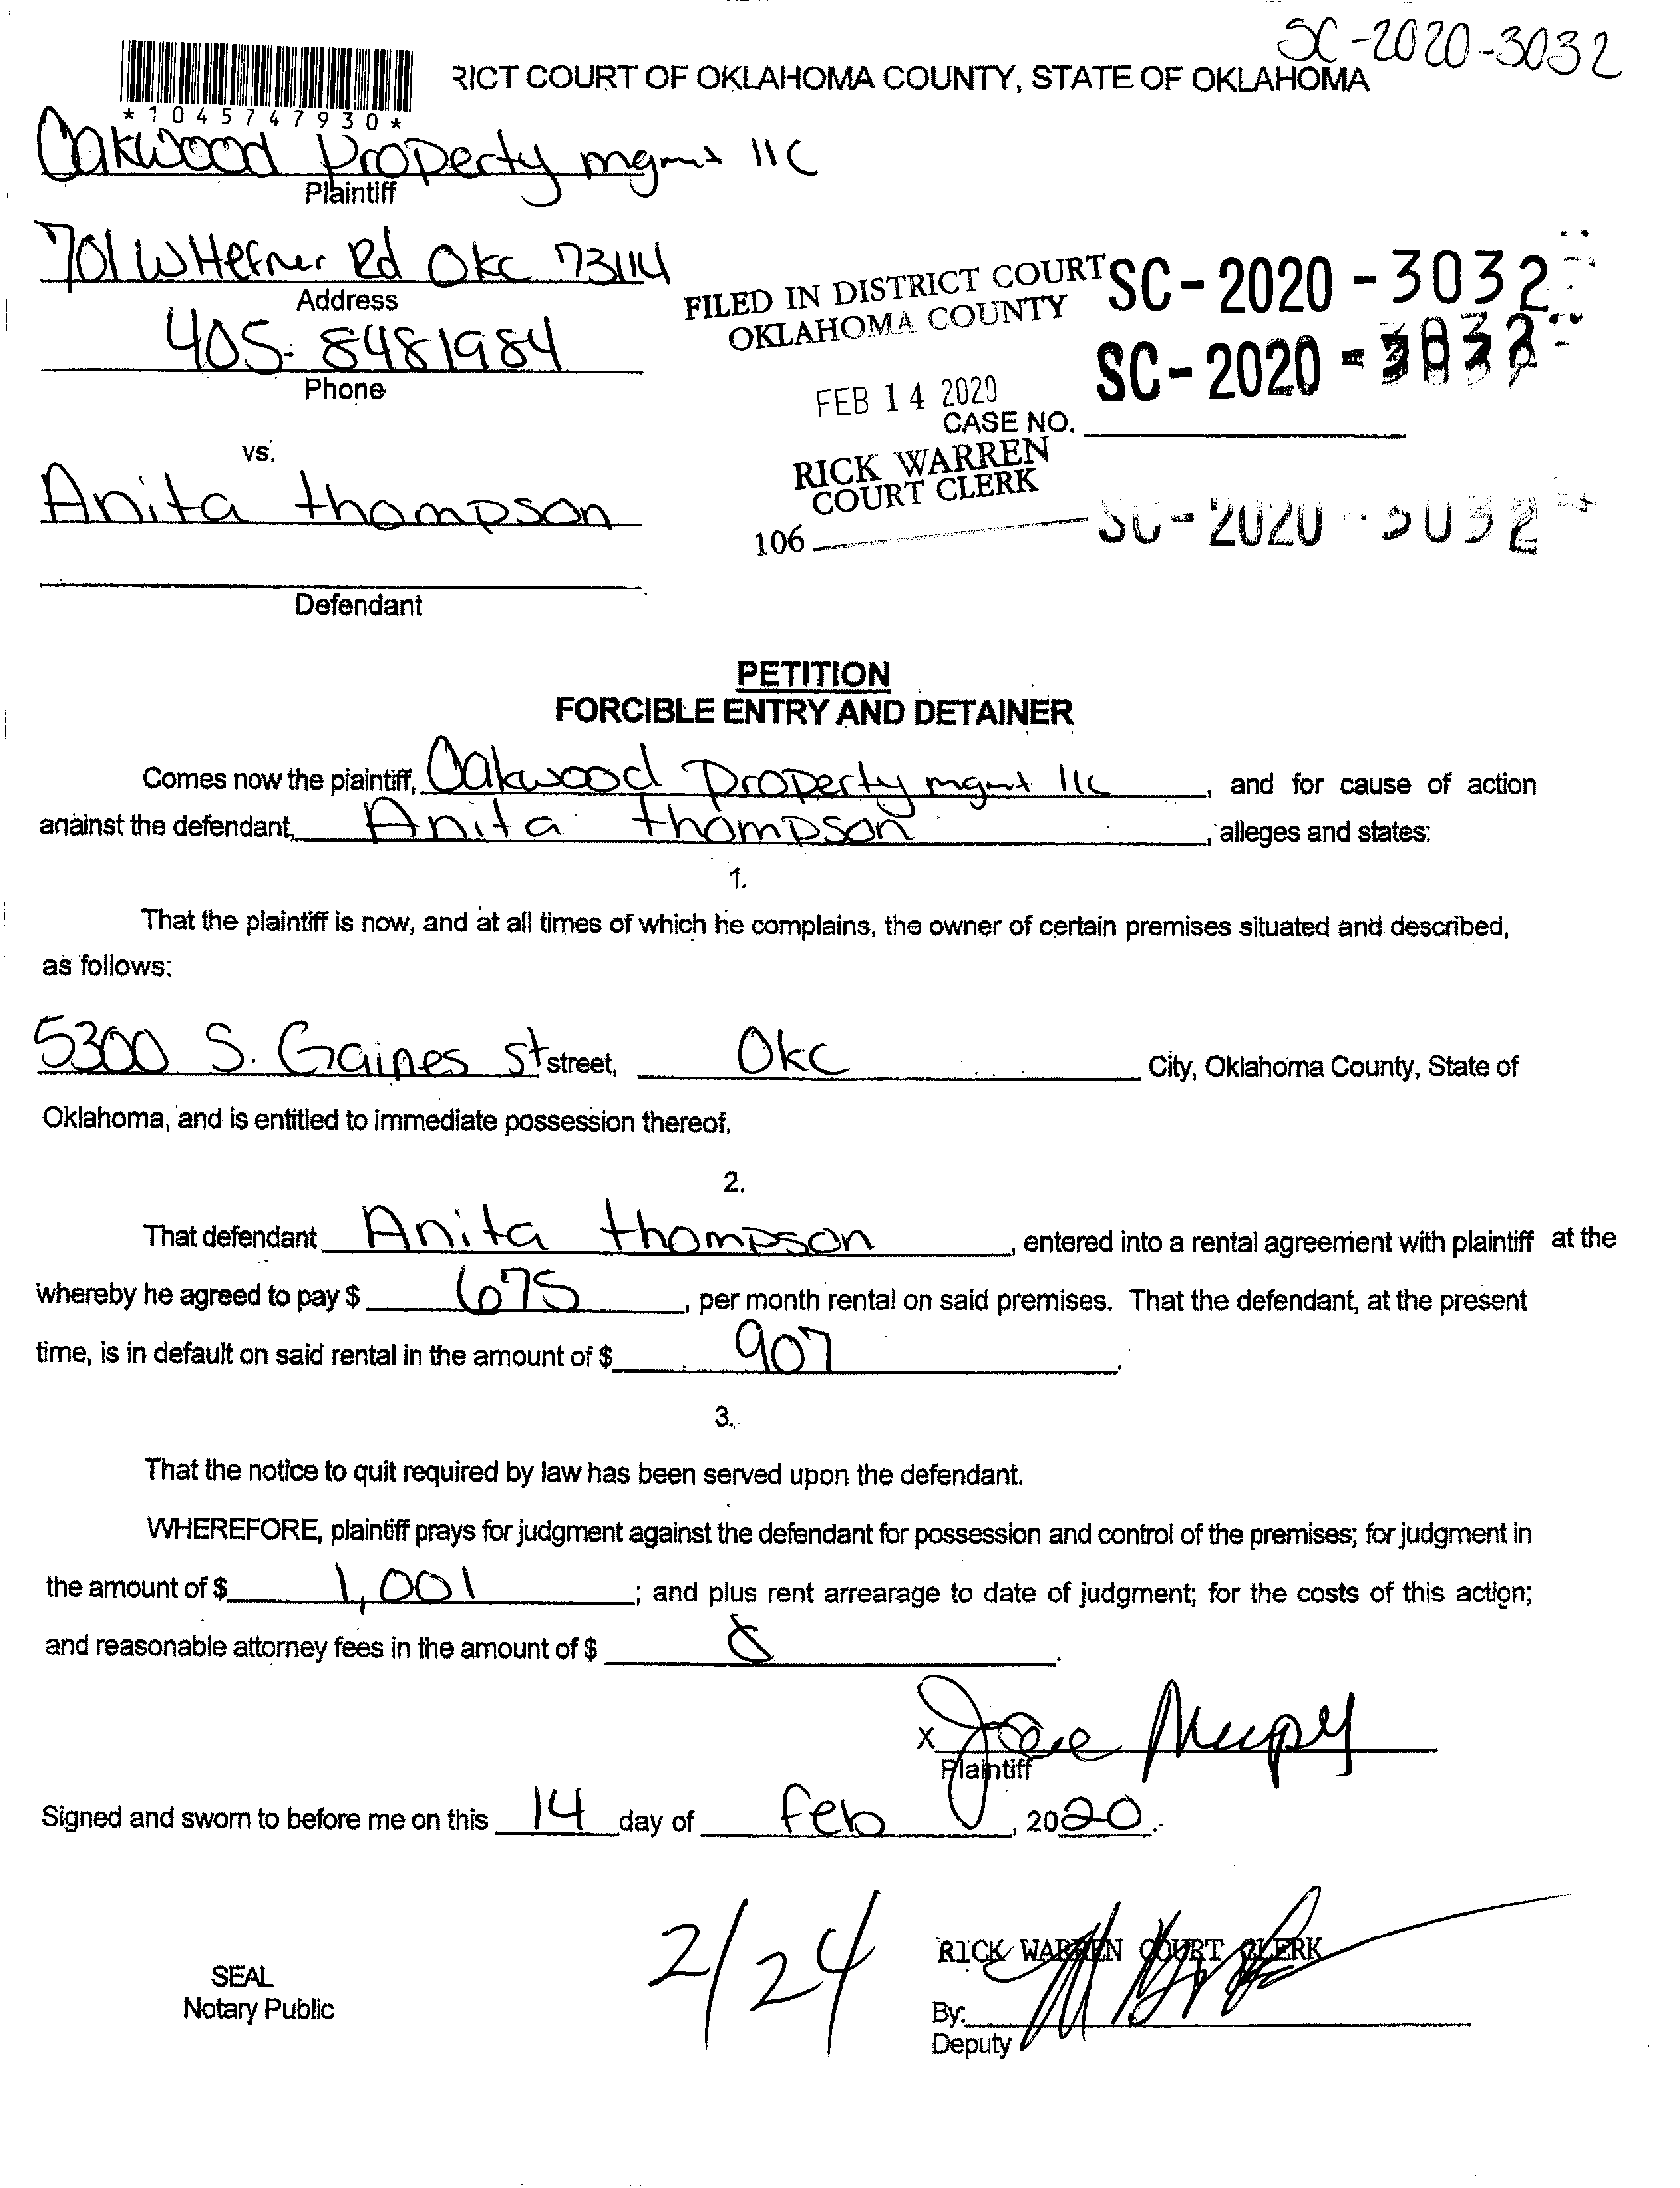 SC-2020-3032
RICT COURT OF OKLAHOMA COUNTY, STATE OF OKLAHOMA
*1045747930*
Oakwood Property mgmt llc
Plaintiff
701 W Hefner Rd Okc 73114
Address
405-8481984
Phone
FILED IN DISTRICT COURT
OKLAHOMA COUNTY
SC-2020-3032
SC-2020-3032
FEB 14 2020
CASE NO.
RICK WARREN
COURT CLERK
106
SC-2020-3032
vs.
Anita thompson
Defendant
PETITION
FORCIBLE ENTRY AND DETAINER
Comes now the plaintiff, Oakwood Property mgmt llc, and for cause of action
against the defendant, Anita thompson, alleges and states:
1.
That the plaintiff is now, and at all times of which he complains, the owner of certain premises situated and described,
as follows:
5300 S. Gaines St street, Okc City, Oklahoma County, State of
Oklahoma, and is entitled to immediate possession thereof.
2.
That defendant Anita thompson, entered into a rental agreement with plaintiff at the
whereby he agreed to pay $ 675, per month rental on said premises. That the defendant, at the present
time, is in default on said rental in the amount of $ 907.
3.
That the notice to quit required by law has been served upon the defendant.
WHEREFORE, plaintiff prays for judgment against the defendant for possession and control of the premises; for judgment in
the amount of $ 1,001; and plus rent arrearage to date of judgment; for the costs of this action;
and reasonable attorney fees in the amount of $
X
Plaintiff
Signed and sworn to before me on this 14 day of Feb, 2020.
2/24
RICK WARREN COURT CLERK
SEAL
Notary Public
By:
Deputy